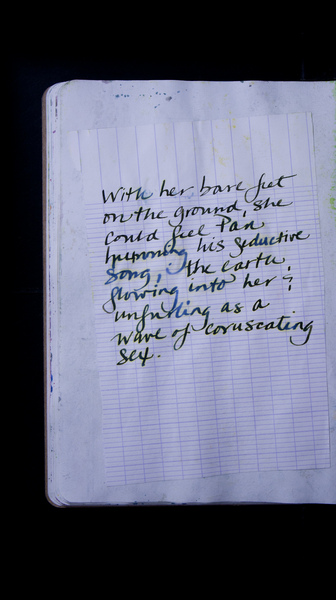 With her bare feet
on the ground, she
could feel Pan
humming his seductive
song, the earth,
flowing into her ;
unfurling as a
wave of coruscating
sex.